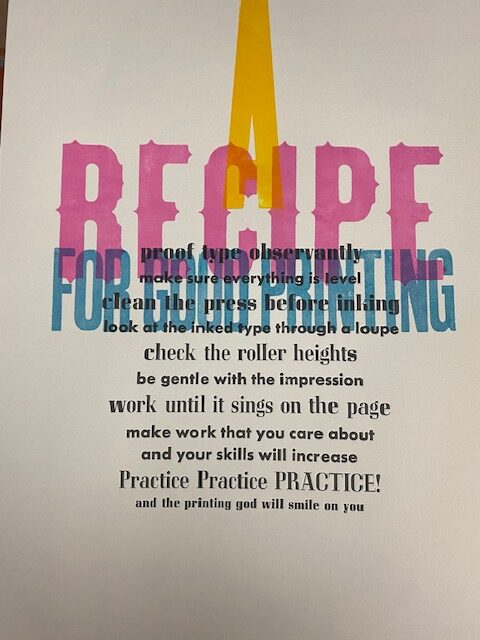 A
RECIPE
FOR GOOD PRINTING
proof type observantly
make sure everything is level
clean the press before inking
look at the inked type through a loupe
check the roller heights
be gentle with the impression
work until it sings on the page
make work that you care about
and your skills will increase
Practice Practice PRACTICE!
and the printing god will smile on you